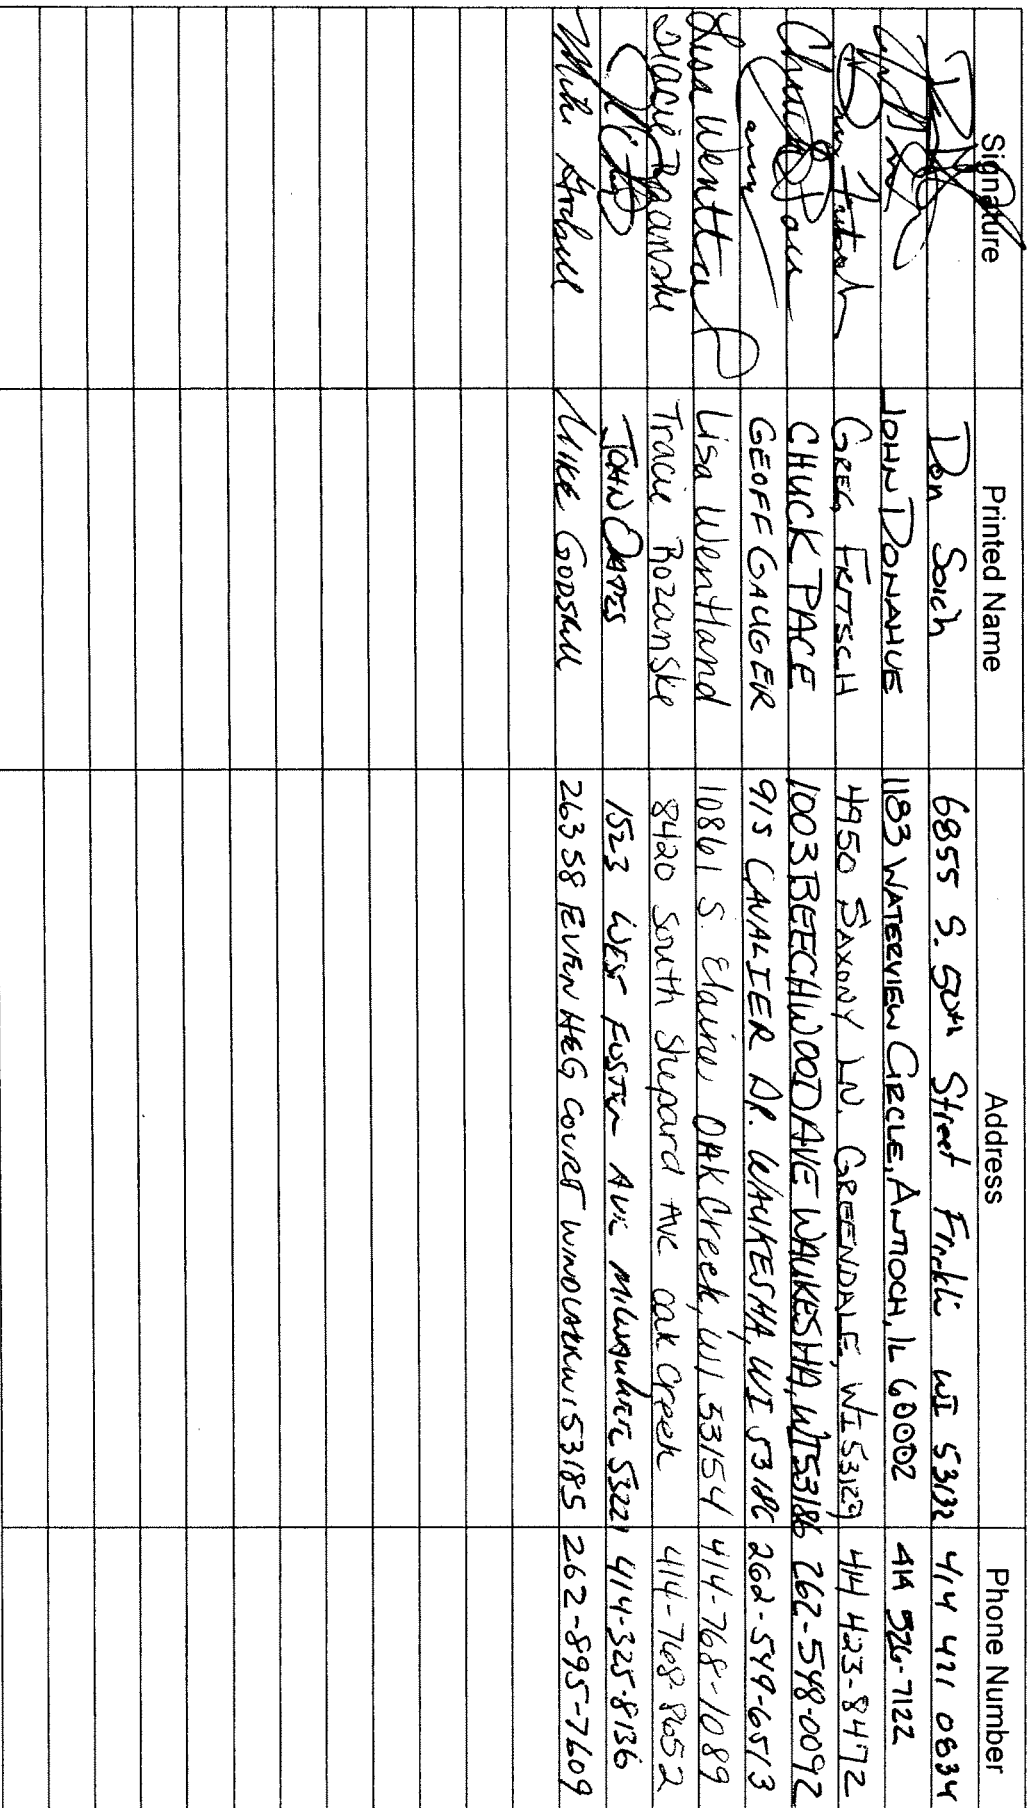 Signature Printed Name Address Phone Number
Don Soich 6855 S. 50th Street Franklin WI 53132 414 421 0834
JOHN DONAHUE 1183 WATERVIEW CIRCLE, ANTIOCH, IL 60002 414 526-7122
GREG FRITSCH 4950 SAXONY LN. GREENDALE, WI 53129 414 423-8472
Chuck Pace CHUCK PACE 1003 BEECHWOOD AVE WAUKESHA, WI 53186 262-548-0092
GEOFF GAUGER 915 CAVALIER DR. WAUKESHA, WI 53186 262-549-6513
Lisa Wentland Lisa Wentland 10861 S. Elaine Oak Creek, WI 53154 414-768-1089
Tracie Rozanske Tracie Rozanske 8420 South Shepard Ave oak creek 414-768-8652
JOHN OATES 1523 WEST FOSTER AVE MILWAUKEE 53221 414-325-8136
Mike Godskll MIKE 26358 EVEN HEG COURT WIND LAKE WI 53185 262-895-7609